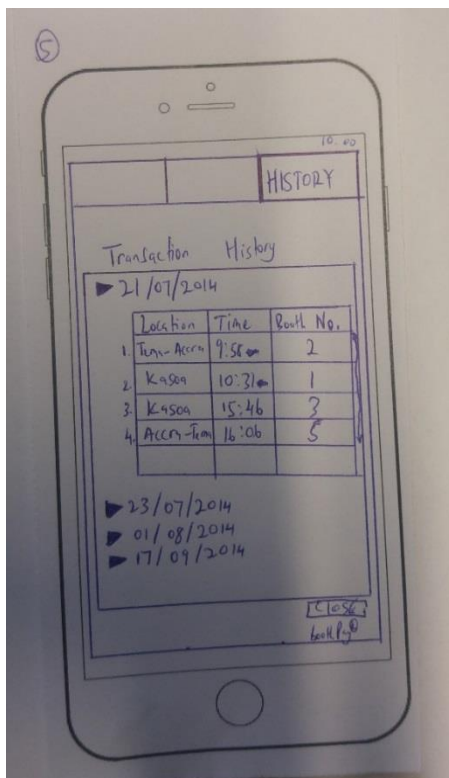 5
10:00
HISTORY
Transaction History
21/07/2014
Location Time Booth No.
1. Tema-Accra 9:58 2
2. Kasoa 10:31 1
3. Kasoa 15:46 3
4. Accra-Tema 16:06 5
23/07/2014
01/08/2014
17/09/2014
CLOSE